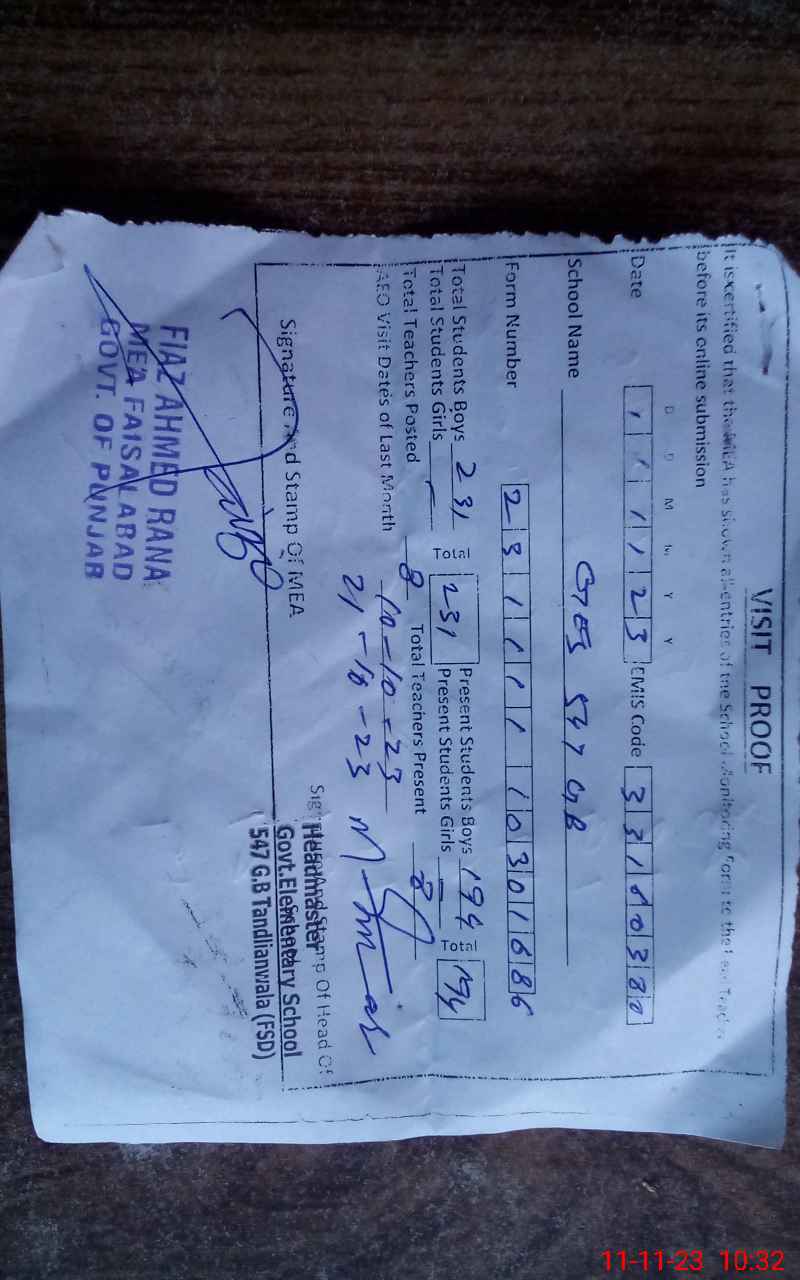 VISIT PROOF
It is certified that the MEA has shown all entries of the School Monitoring Form to the Head Teacher
before its online submission
D D M M Y Y
Date 1 1 1 1 2 3 EMIS Code 3 3 1 0 3 0
School Name GES 547 GB
Form Number 2 3 1 1 1 1 1 0 3 0 1 6 8 6
Total Students Boys 231 Total 231 Present Students Boys 194 Total 194
Total Students Girls — Present Students Girls —
Total Teachers Posted 8 Total Teachers Present 8
AEO Visit Dates of Last Month 10-10-23
21-10-23
Signature And Stamp Of MEA
Signature And Stamp Of Head Of
Headmaster
Govt.Elementary School
547 G.B Tandlianwala (FSD)
FIAZ AHMED RANA
MEA FAISALABAD
GOVT. OF PUNJAB
11-11-23 10:32